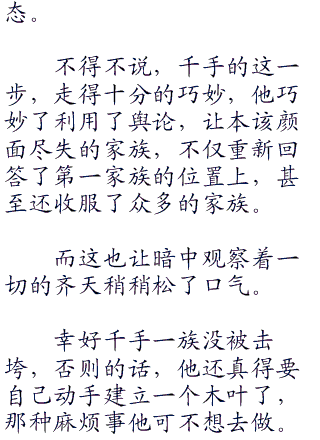 态。
不得不说，千手的这一
步，走得十分的巧妙，他巧
妙了利用了舆论，让本该颜
面尽失的家族，不仅重新回
答了第一家族的位置上，甚
至还收服了众多的家族。
而这也让暗中观察着一
切的齐天稍稍松了口气。
幸好千手一族没被击
垮，否则的话，他还真得要
自己动手建立一个木叶了，
那种麻烦事他可不想去做。